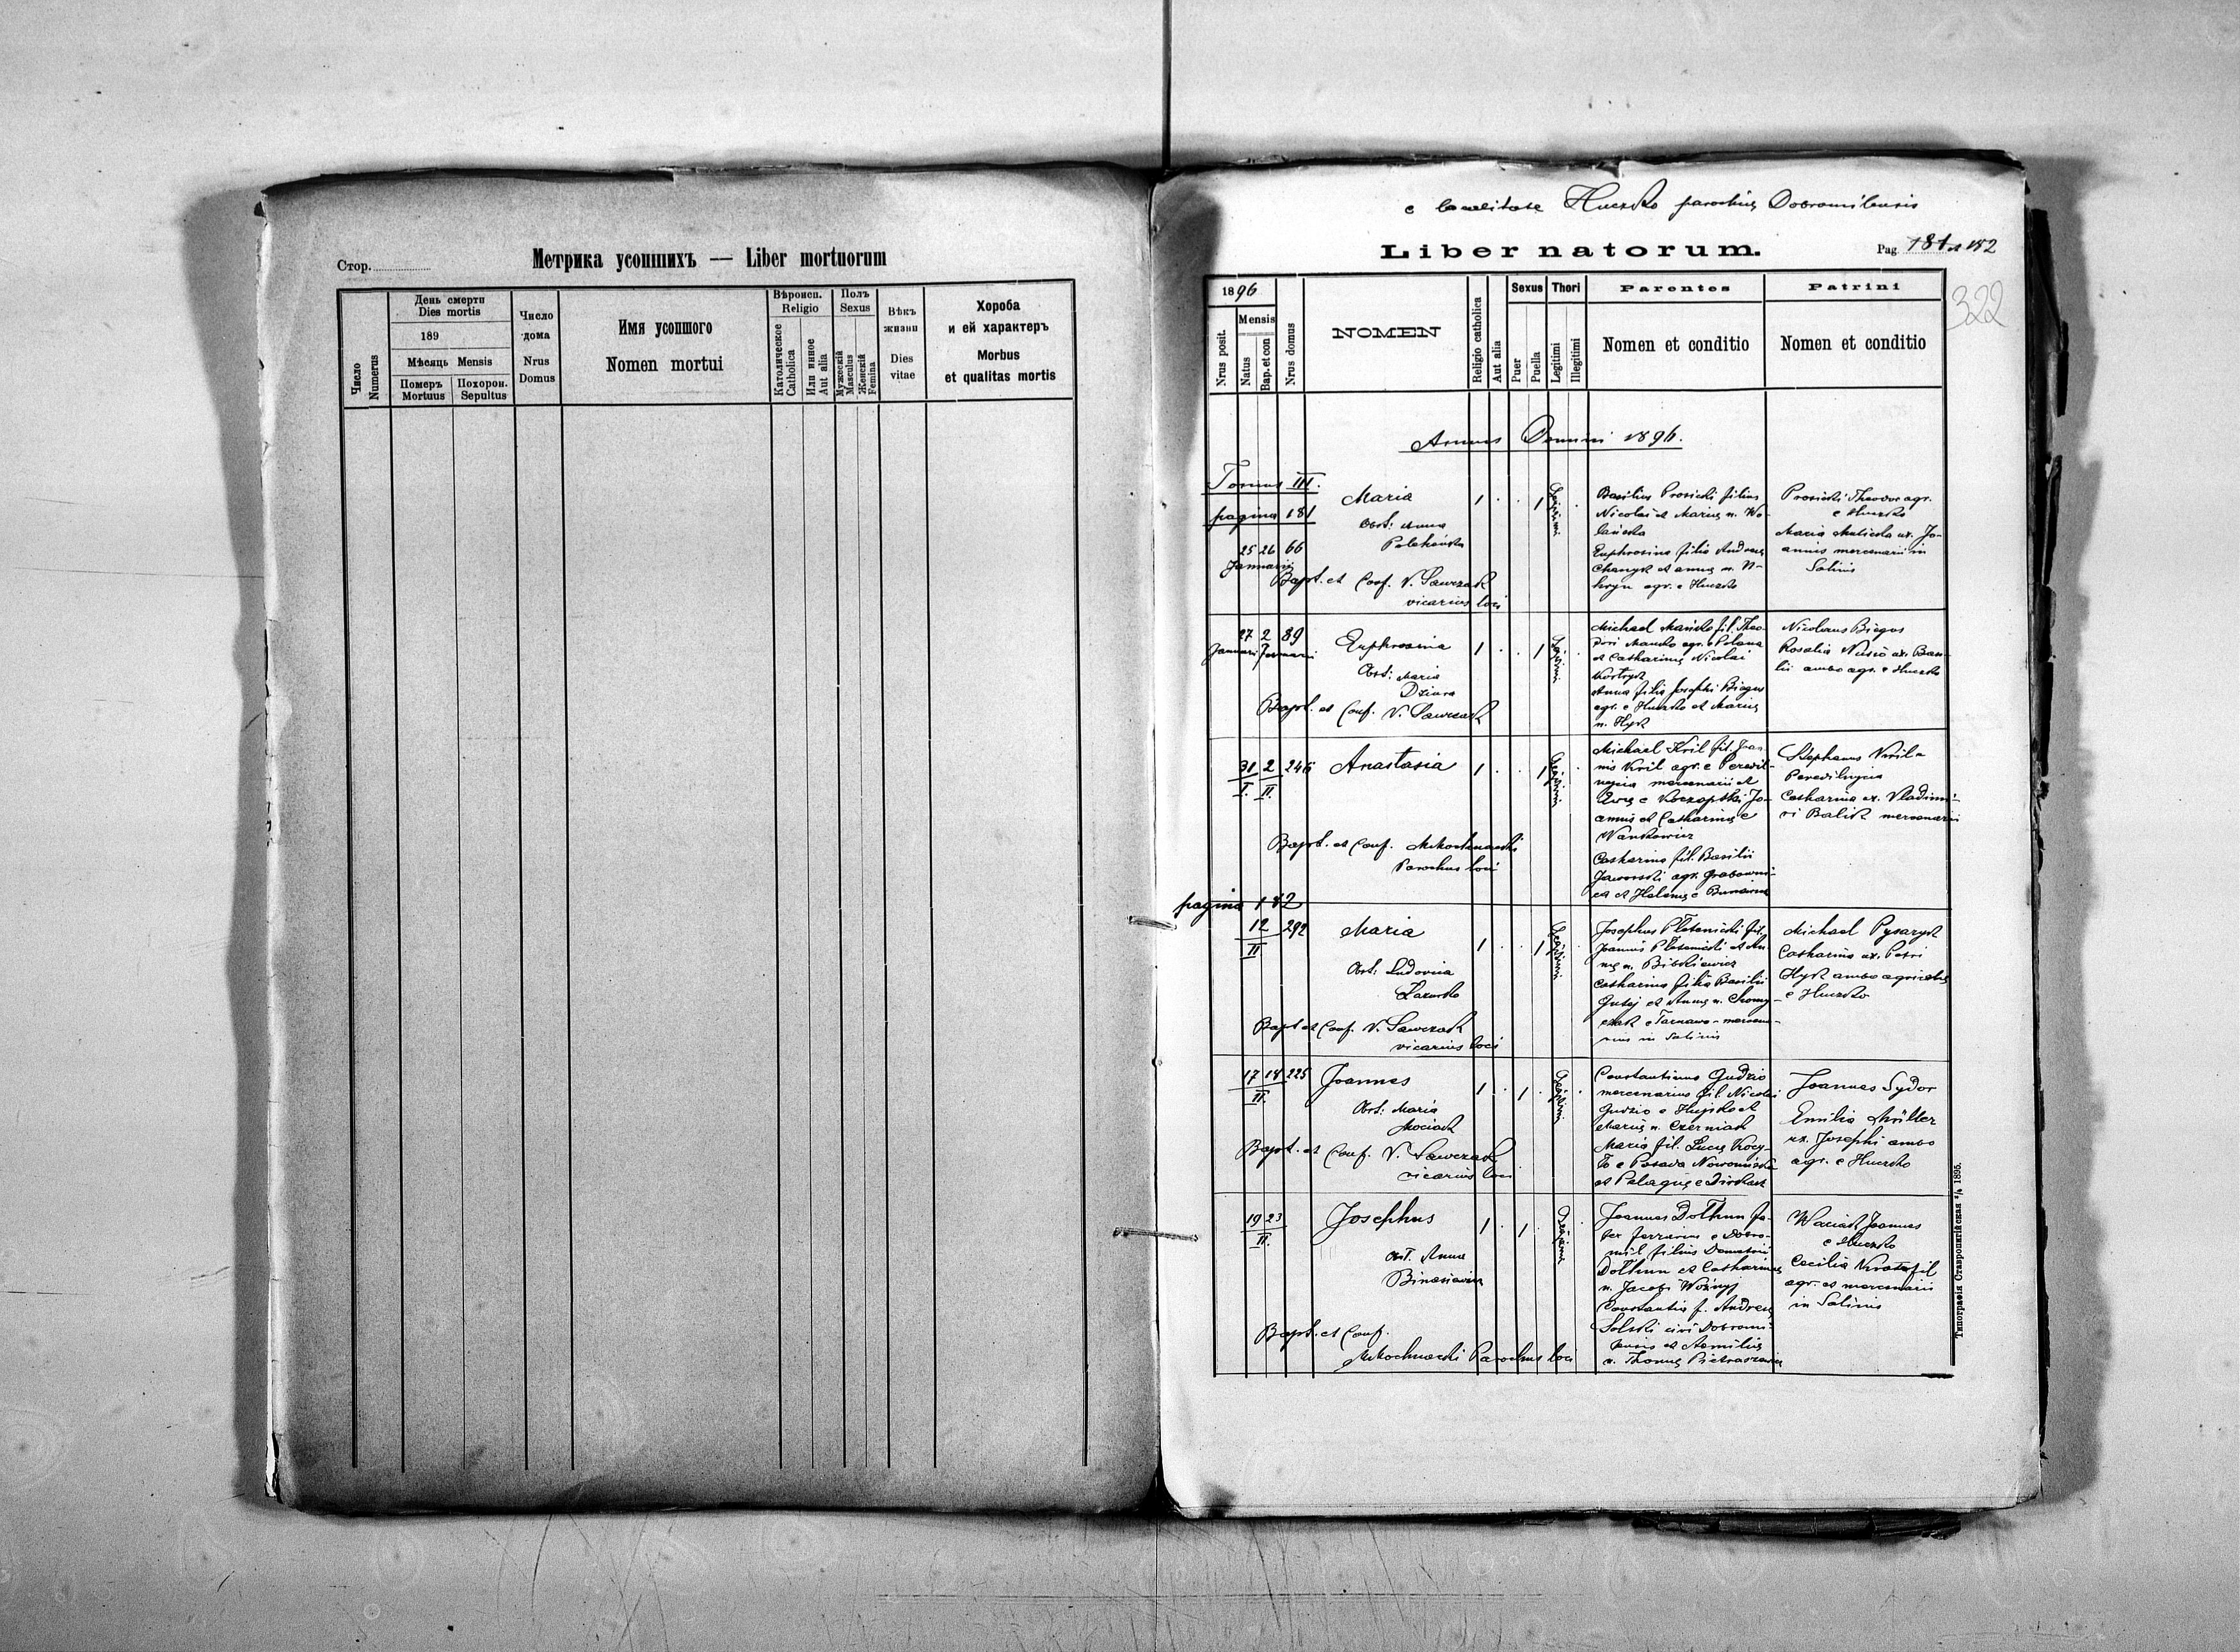 Стор.
Метрика усопшихъ — Liber mortuorum
Число
Numerus
День смерти
Dies mortis
189
Мѣсяць Mensis
Померъ
Mortuus
Похорон.
Sepultus
Число
дома
Nrus
Domus
Имя усопшого
Nomen mortui
Вѣроисп.
Religio
Католическое
Catholica
Или инное
Aut alia
Полъ
Sexus
Мужескій
Masculus
Женскій
Femina
Вѣкъ
жизни
Dies
vitae
Хороба
и ей характеръ
Morbus
et qualitas mortis
e localitate Huczko parochiæ Dobromilensis
Liber natorum.
Pag. 181 et 182
322
1896
Nrus posit.
Mensis
Natus
Bap. et con
Nrus domus
NOMEN
Religio catholica
Aut alia
Sexus
Puer
Puella
Thori
Legitimi
Illegitimi
Parentes
Nomen et conditio
Patrini
Nomen et conditio
Annus Domini 1896.
Tomus III.
pagina 181
25 26 66
Januarii
Maria
Obst: Anna
Bapt. et Conf. V. Sawczak
vicarius loci
1 . . 1 Legitimi .
Basilius Prosicki filius
Nicolai et Mariæ n. Wo-
lańska
Euphrosina filia Andreæ
Chanyk et Annæ n.
agr. e Huczko
Prosicki Theodor agr.
e Huczko
Maria ux. Jo-
annis mercenarii in
Salinis
27 2 89
Januarii Februarii
Euphrosina
Obst: Maria
Dziura
Bapt. et Conf. V. Sawczak
1 . . 1 Legitimi .
Michael fil. Theo-
dori agr.
et Catharinæ Nicolai
Anna filia Josephi Biegus
agr. e Huczko et Mariæ
n. Hyk
Nicolaus Biegus
Rosalia ux. Basi-
lii ambo agr. e Huczko
31 2 246
I. II.
Anastasia
Bapt. et Conf. Mikochnacki
Parochus loci
1 . . 1 Legitimi .
Michael Kril fil. Joan-
nis Kril agr. e
mercenarii et
Evæ e Jo-
annis et Catharinæ e
Wankowicz
Catharina fil. Basilii
Jaworski agr.
et Helenæ e
Stephanus Kril e
Catharina ux. Vladimi-
ri Balik mercenarii
pagina 182
12 292
II
Maria
Obst: Ludovica
Lazorko
Bapt et Conf. V. Sawczak
vicarius loci
1 . . 1 Legitimi .
Josephus Pletenicki fil.
Joannis Pletenicki et An-
næ n. Bibkiewicz
Catharina filia Basilii
Gutej et Annæ n.
e Tarnawa - mercena-
rius in Salinis
Michael Pysaryk
Catharina ux. Petri
Hyk ambo agricolæ
e Huczko
17 18 225
II.
Joannes
Obst: Maria
Mociak
Bapt. et Conf. V. Sawczak
vicarius loci
1 . 1 . Legitimi .
Constantinus Gudzio
mercenarius fil. Nicolai
Gudzio e et
Mariæ n. Czerniak
Maria fil. Lucæ
e Posada Nowomiejska
et Pelagiæ e
Joannes Sydor
Emilia Müller
ux. Josephi ambo
agr. e Huczko
19 23
II.
Josephus
Obst. Anna
Bapt. et Conf.
Mikochnacki Parochus loci
1 . 1 . Legitimi
Joannes Dolhun fa-
ber ferrarius e Dobro-
mil filius
Dolhun et Catharinæ
n. Jacobi Woźnyj
Constantia f. Andreæ
Solski civi Dobromi-
lensis et Aemiliæ
n. Thomæ
Waciak Joannes
e Huczko
Cecilia
agr. et mercenarii
in Salinis
Типографія Ставропигійская 1895.